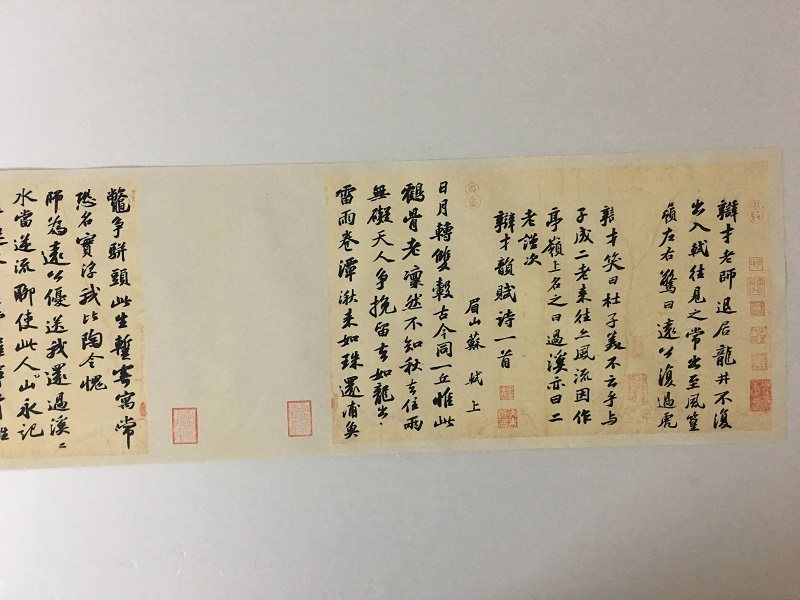 辯才老師退居龍井不復
出入軾往見之常出至風篁
嶺左右驚曰遠公復過虎
辯才笑曰杜子美不云乎与
子成二老來往亦風流因作
亭嶺上名之曰過溪亦曰二
老謹次
辯才韻賦詩一首
眉山蘇 軾上
日月轉雙轂古今同一丘惟此
鶴骨老凜然不知秋去住兩
無礙天人爭挽留去如龍出山
雷雨卷潭湫來如珠還浦魚
鼈爭駢頭此生暫寄寓常
恐名實浮我比陶令愧
師為遠公優送我還過溪〻
水當逆流聊使此人山永記